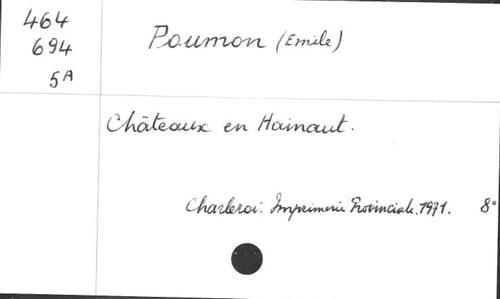 464
694
5A
Poumon (Emile)
Châteaux en Hainaut.
Charleroi: Imprimerie Provinciale. 1971. 8°